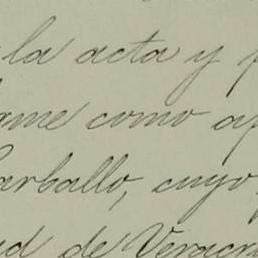 la acta y
como
Carballo, cuyo
de Veracru